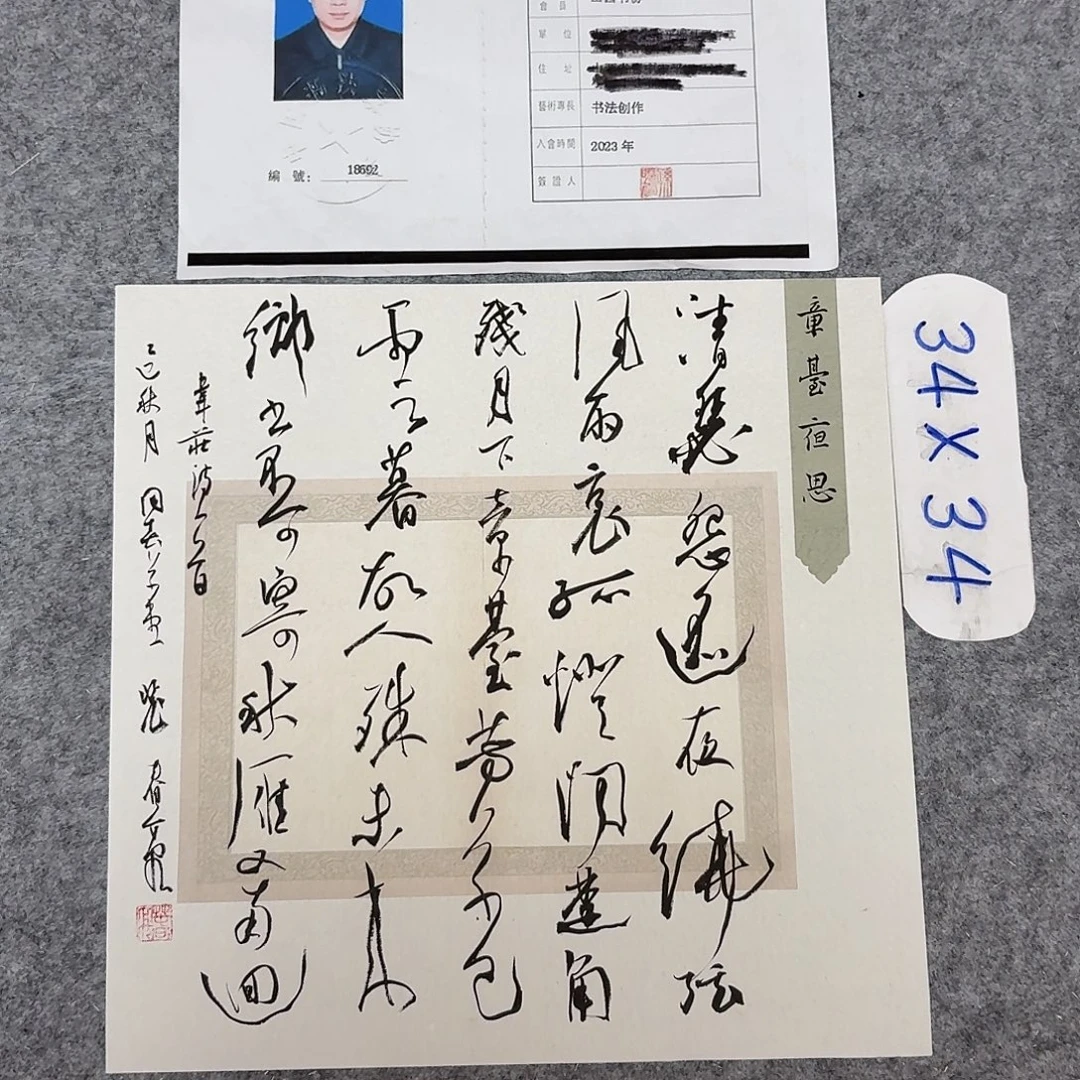 會長
單位
住址
藝術專長 书法创作
入會時間 2023年
簽證人
編號: 18692
章臺夜思
清瑟怨遥夜繞弦
風雨哀孤燈聞楚角
殘月下章臺芳草已
雲暮故人殊未來
鄉書不可寄秋雁又南迴
韋莊詩一首
乙巳秋月
34X34